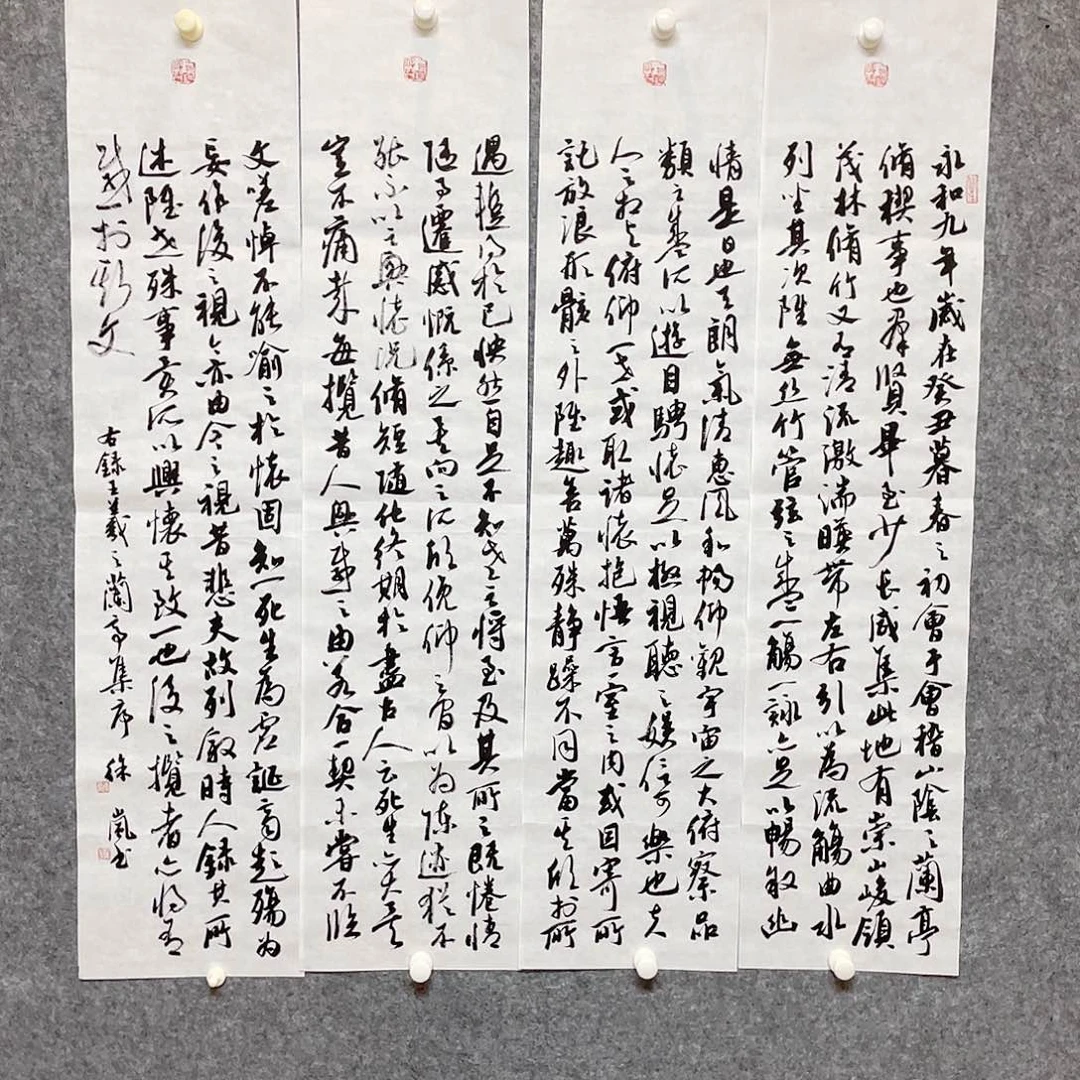 永和九年歲在癸丑暮春之初會于會稽山陰之蘭亭
脩稧事也羣賢畢至少長咸集此地有崇山峻領
茂林脩竹又有清流激湍暎帶左右引以為流觴曲水
列坐其次雖無絲竹管弦之盛一觴一詠亦足以暢敘幽
情是日也天朗氣清惠風和暢仰觀宇宙之大俯察品
類之盛所以遊目騁懷足以極視聽之娛信可樂也夫
人之相與俯仰一世或取諸懷抱悟言一室之內或因寄所
託放浪形骸之外雖趣舍萬殊靜躁不同當其欣於所
遇蹔得於己怏然自足不知老之將至及其所之既惓情
隨事遷感慨係之矣向之所欣俛仰之間以為陳迹猶不
能不以之興懷況脩短隨化終期於盡古人云死生亦大矣
豈不痛哉每攬昔人興感之由若合一契未嘗不臨
文嗟悼不能喻之於懷固知一死生為虛誕齊彭殤為
妄作後之視今亦由今之視昔悲夫故列敘時人錄其所
述雖世殊事異所以興懷其致一也後之攬者亦將有
感於斯文
右錄王羲之蘭亭集序 徐嵐書